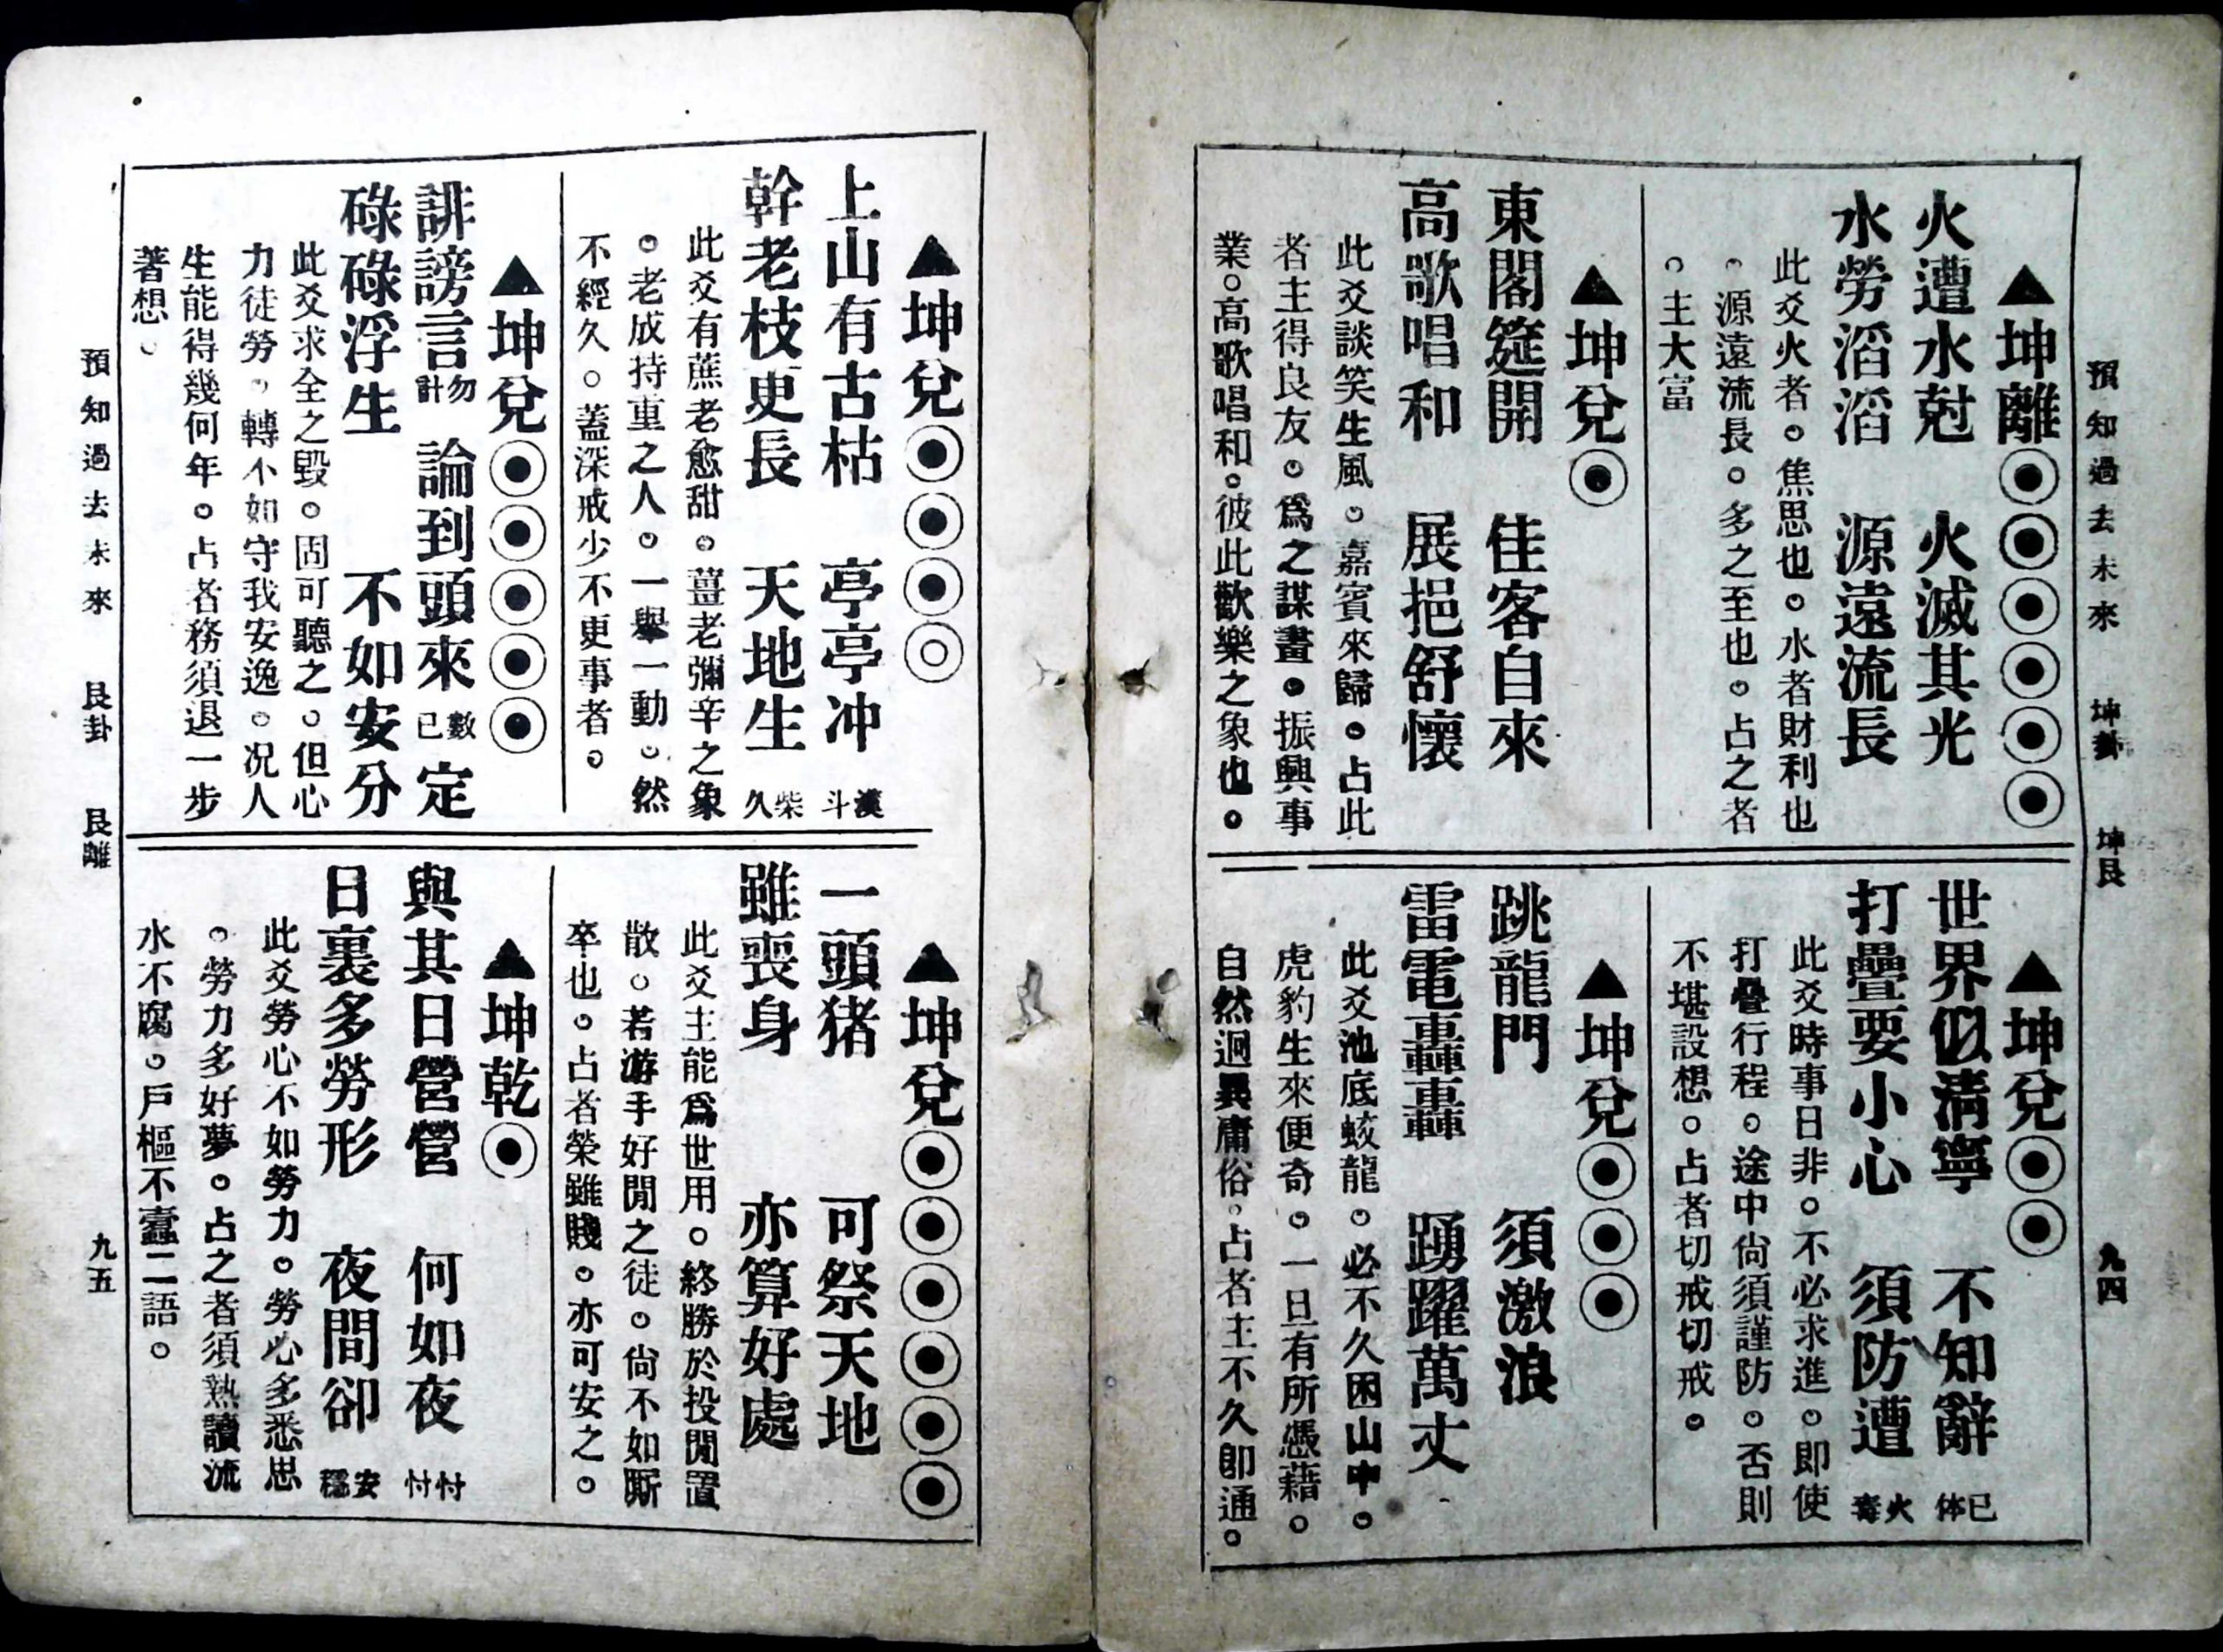 預知過去未來　坤卦　坤艮　九四
▲坤離◉◉◉◉◉◉
火遭水尅　火滅其光
水勞滔滔　源遠流長
此爻火者。焦思也。水者財利也
。源遠流長。多之至也。占之者
。主大富
▲坤兌◉
東閣筵開　佳客自來
高歌唱和　展挹舒懷
此爻談笑生風。嘉賓來歸。占此
者主得良友。爲之謀畫。振興事
業。高歌唱和。彼此歡樂之象也。
▲坤兌◉◉
世界似淸寧　不知辭已体
打疊要小心　須防遭火毒
此爻時事日非。不必求進。即使
打疊行程。途中尙須謹防。否則
不堪設想。占者切戒切戒。
▲坤兌◉◉◉
跳龍門　須激浪
雷電轟轟　踴躍萬丈
此爻池底蛟龍。必不久困山中。
虎豹生來便奇。一旦有所憑藉。
自然迥異庸俗。占者主不久即通。
▲坤兌◉◉◉◎
上山有古枯　亭亭冲漢斗
幹老枝更長　天地生柴久
此爻有蔗老愈甜。薑老彌辛之象
。老成持重之人。一舉一動。然
不經久。蓋深戒少不更事者。
▲坤兌◉◉◉◉◉
誹謗言勿計　論到頭來數已定
碌碌浮生　不如安分
此爻求全之毀。固可聽之。但心
力徒勞。轉不如守我安逸。况人
生能得幾何年。占者務須退一步
著想。
▲坤兌◉◉◉◉◉◉
一頭猪　可祭天地
雖喪身　亦算好處
此爻主能爲世用。終勝於投閒置
散。若游手好閒之徒。尙不如厮
卒也。占者榮雖賤。亦可安之。
▲坤乾◉
與其日營營　何如夜忖忖
日裏多勞形　夜間卻安穩
此爻勞心不如勞力。勞心多悉思
。勞力多好夢。占之者須熟讀流
水不腐。戶樞不蠹二語。
預知過去未來　艮卦　艮離　九五